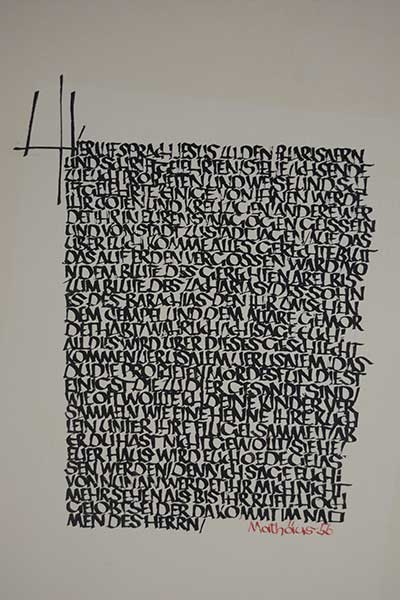 SPRACH JESUS ZU DEN PHARISAERN
UND SCHRIFTGELEHRTEN SIEHE ICH SENDE
ZU EUCH PROFETEN UND WEISE UND SCHRI
FTGELEHRTE EINIGE VON IHNEN WERDE
T IHR TÖTEN UND KREUZIGEN ANDERE WER
DET IHR IN EUREN SYNAGOGEN GEISSELN
UND VON STADT ZU STADT JAGEN AUF DAS
ÜBER EUCH KOMME ALLES GERECHTE BLUT
DAS AUF ERDEN VERGOSSEN WARD VO
N DEM BLUTE DES GERECHTEN ABEL BIS
ZUM BLUTE DES ZACHARIAS/DES SOHN
ES DES BARACHIAS DEN IHR ZWISCHEN
DEM TEMPEL UND DEM ALTARE GEMOR
DET HABT/WAHRLICH ICH SAGE EUCH/
ALL DIES WIRD ÜBER DIESES GESCHLECHT
KOMMEN/JERUSALEM JERUSALEM DAS
DU DIE PROFETEN MORDEST UND DIEST
EINIGST DIE ZU DIR GESANDT SIND/
WIE OFT WOLLTE ICH DEINE KINDER
SAMMELN WIE EINE HENNE IHRE KÜCH
LEIN UNTER IHRE FLÜGEL SAMMELT/AB
ER DU HAST NICHT GEWOLLT/SIEHE
EUER HAUS WIRD EUCH ÖDE GELAS
SEN WERDEN/DENN ICH SAGE EUCH/
VON NUN AN WERDET IHR MICH NICHT
MEHR SEHEN ALS BIS IHR RUFT/HOCH
GELOBT SEI DER DA KOMMT IM NA
MEN DES HERRN/ Mathäus 56